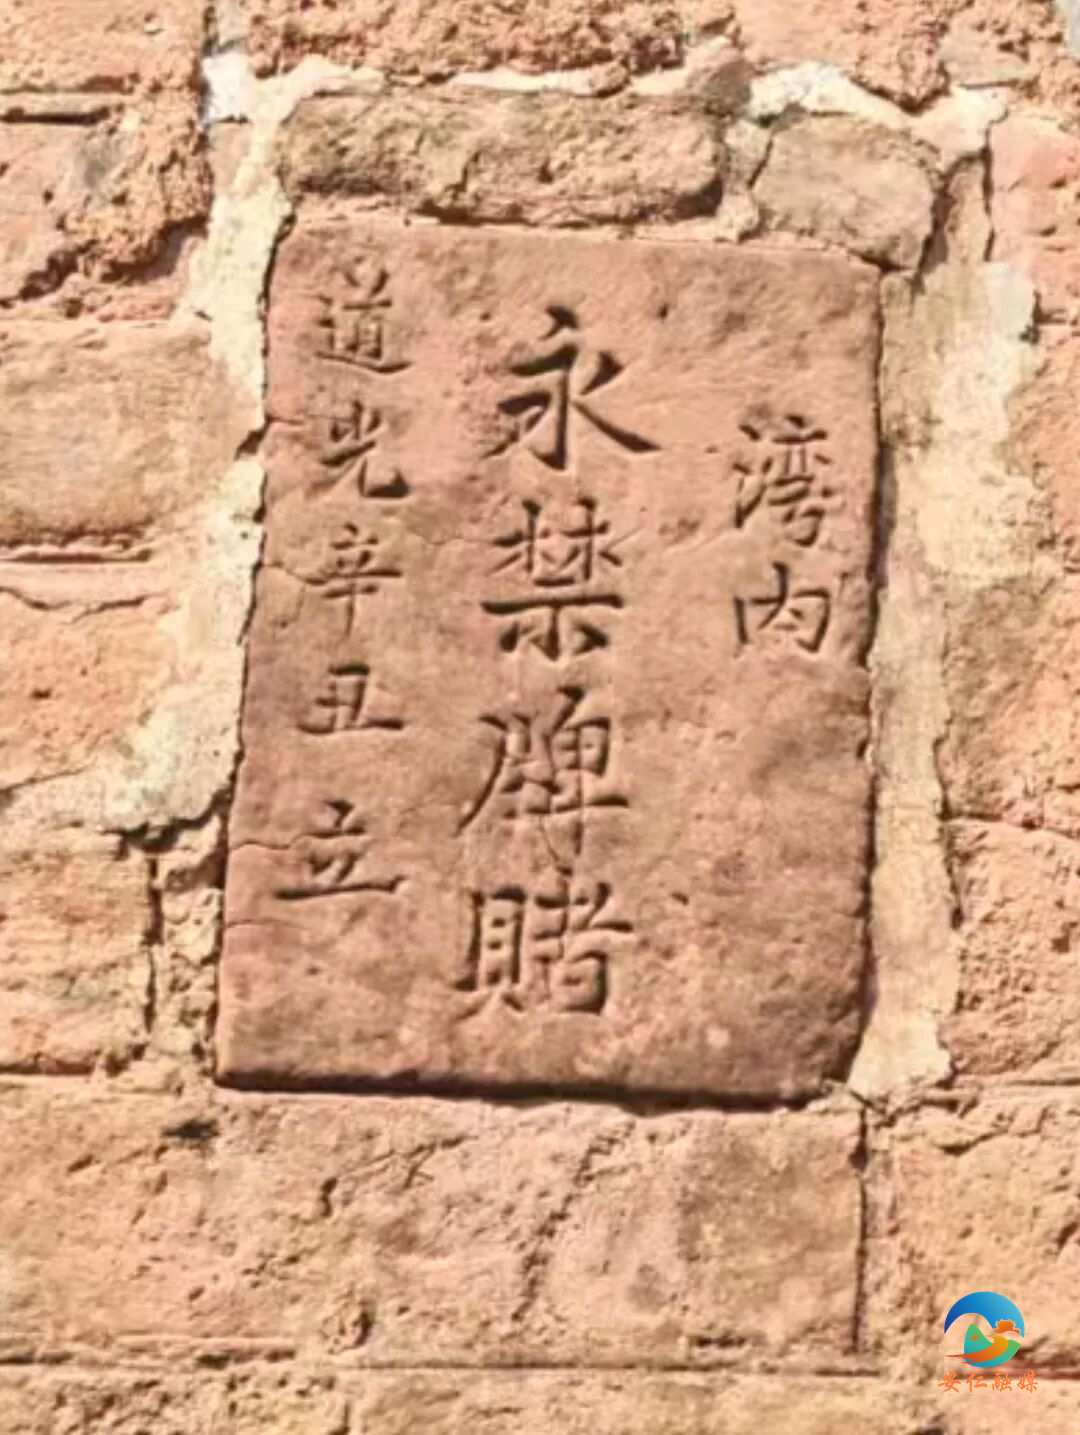 湾内
永禁牌賭
道光辛丑立
安仁融媒